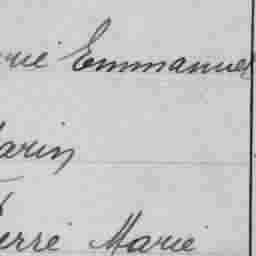 rie Emmanuel
arin
ierre Marie